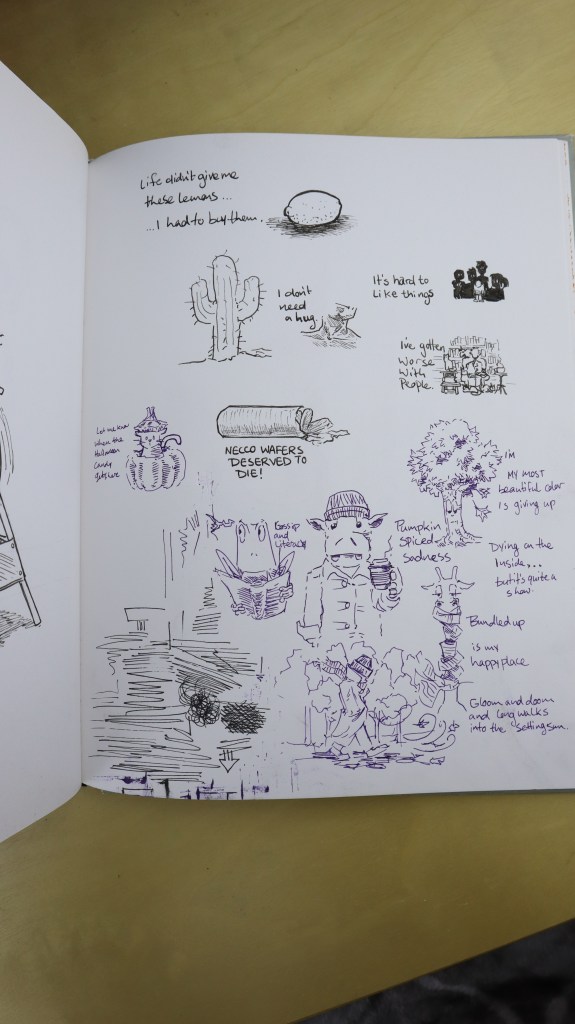 Life didn't give me
these lemons...
...I had to buy them.
I don't
need
a hug.
It's hard to
Like things
I've gotten
Worse
With
People.
Let me know
when the
Halloween
Candy
gets here
NECCO WAFERS
DESERVED TO
DIE!
I'm
MY MOST
beautiful color
is giving up
Gossip
and
Literacy
Pumpkin
Spiced
Sadness
Dying on the
Inside,..
but it's quite a
show.
Bundled up
is my
happy place
Gloom and doom
and long walks
into the setting sun..